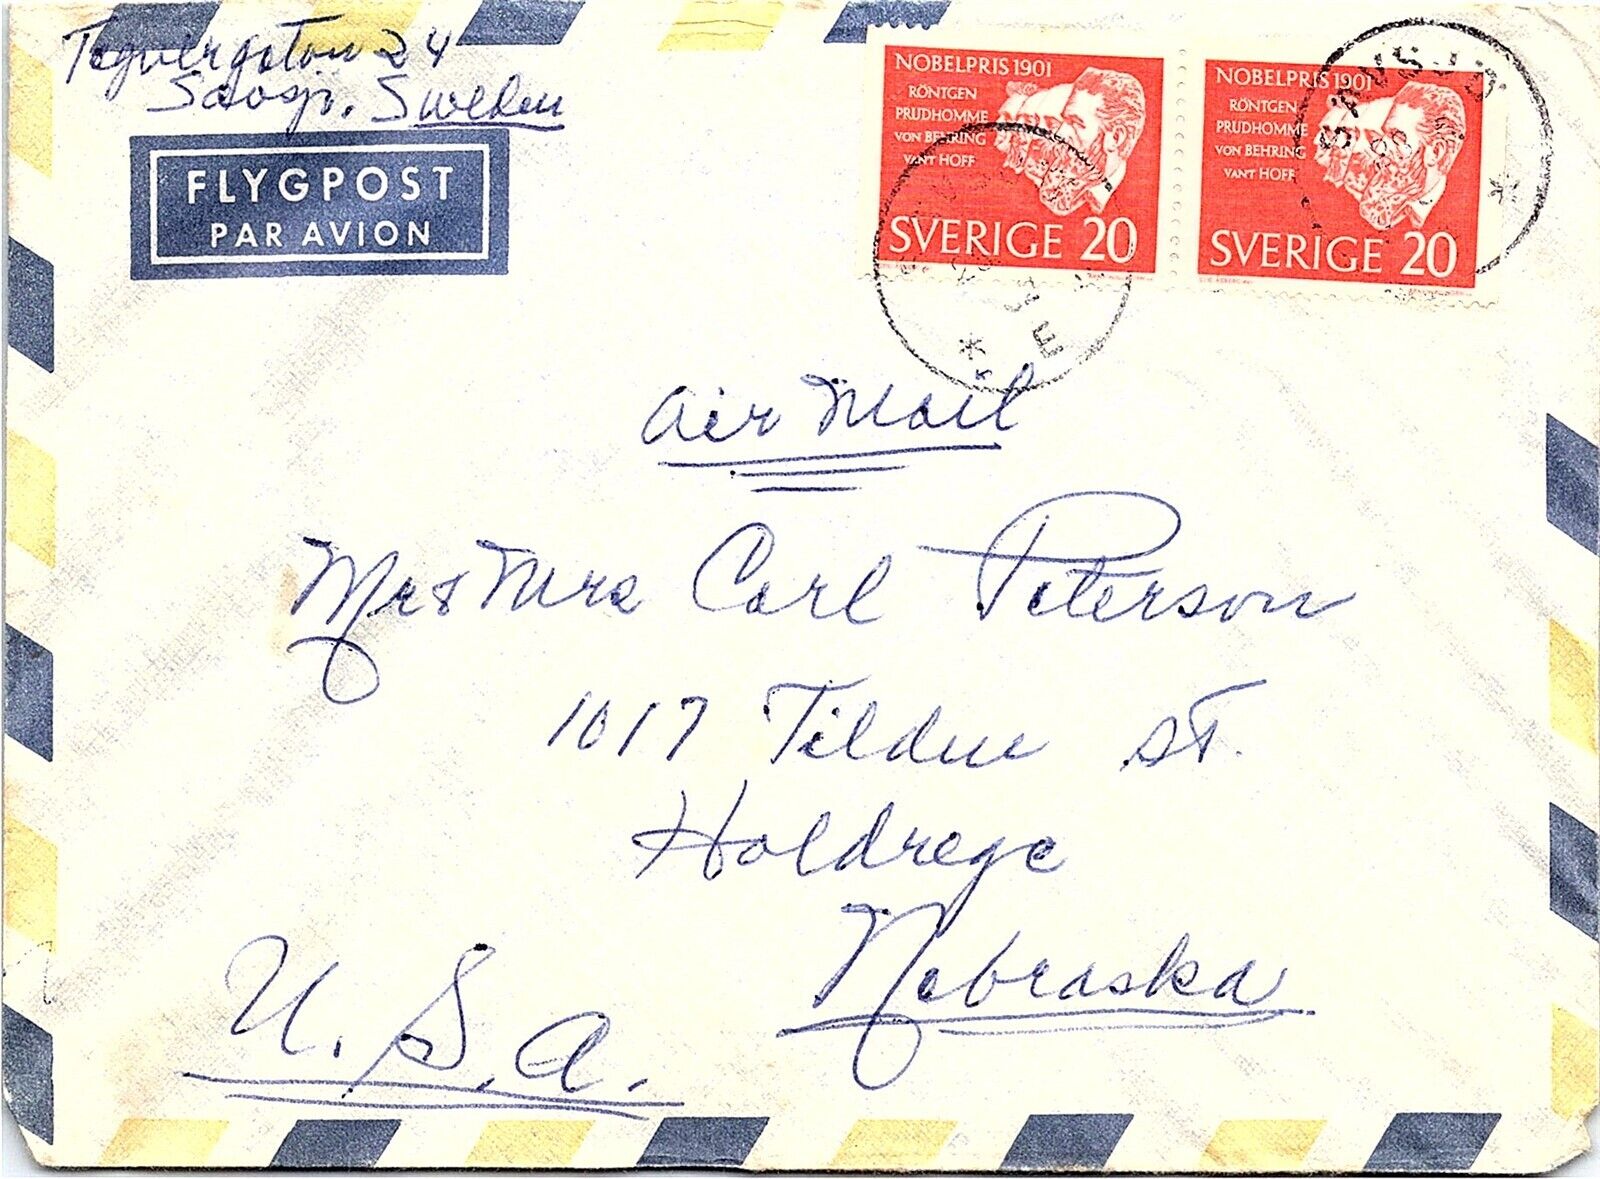 Tegvergatan 24
Savsjo. Sweden
FLYGPOST
PAR AVION
NOBELPRIS 1901
RÖNTGEN
PRUDHOMME
VON BEHRING
VANT HOFF
SVERIGE 20
NOBELPRIS 1901
RÖNTGEN
PRUDHOMME
VON BEHRING
VANT HOFF
SVERIGE 20
SÄVSJÖ
Air Mail
Mr & Mrs Carl Peterson
1017 Tilden St.
Holdrege
Nebraska
U.S.A.